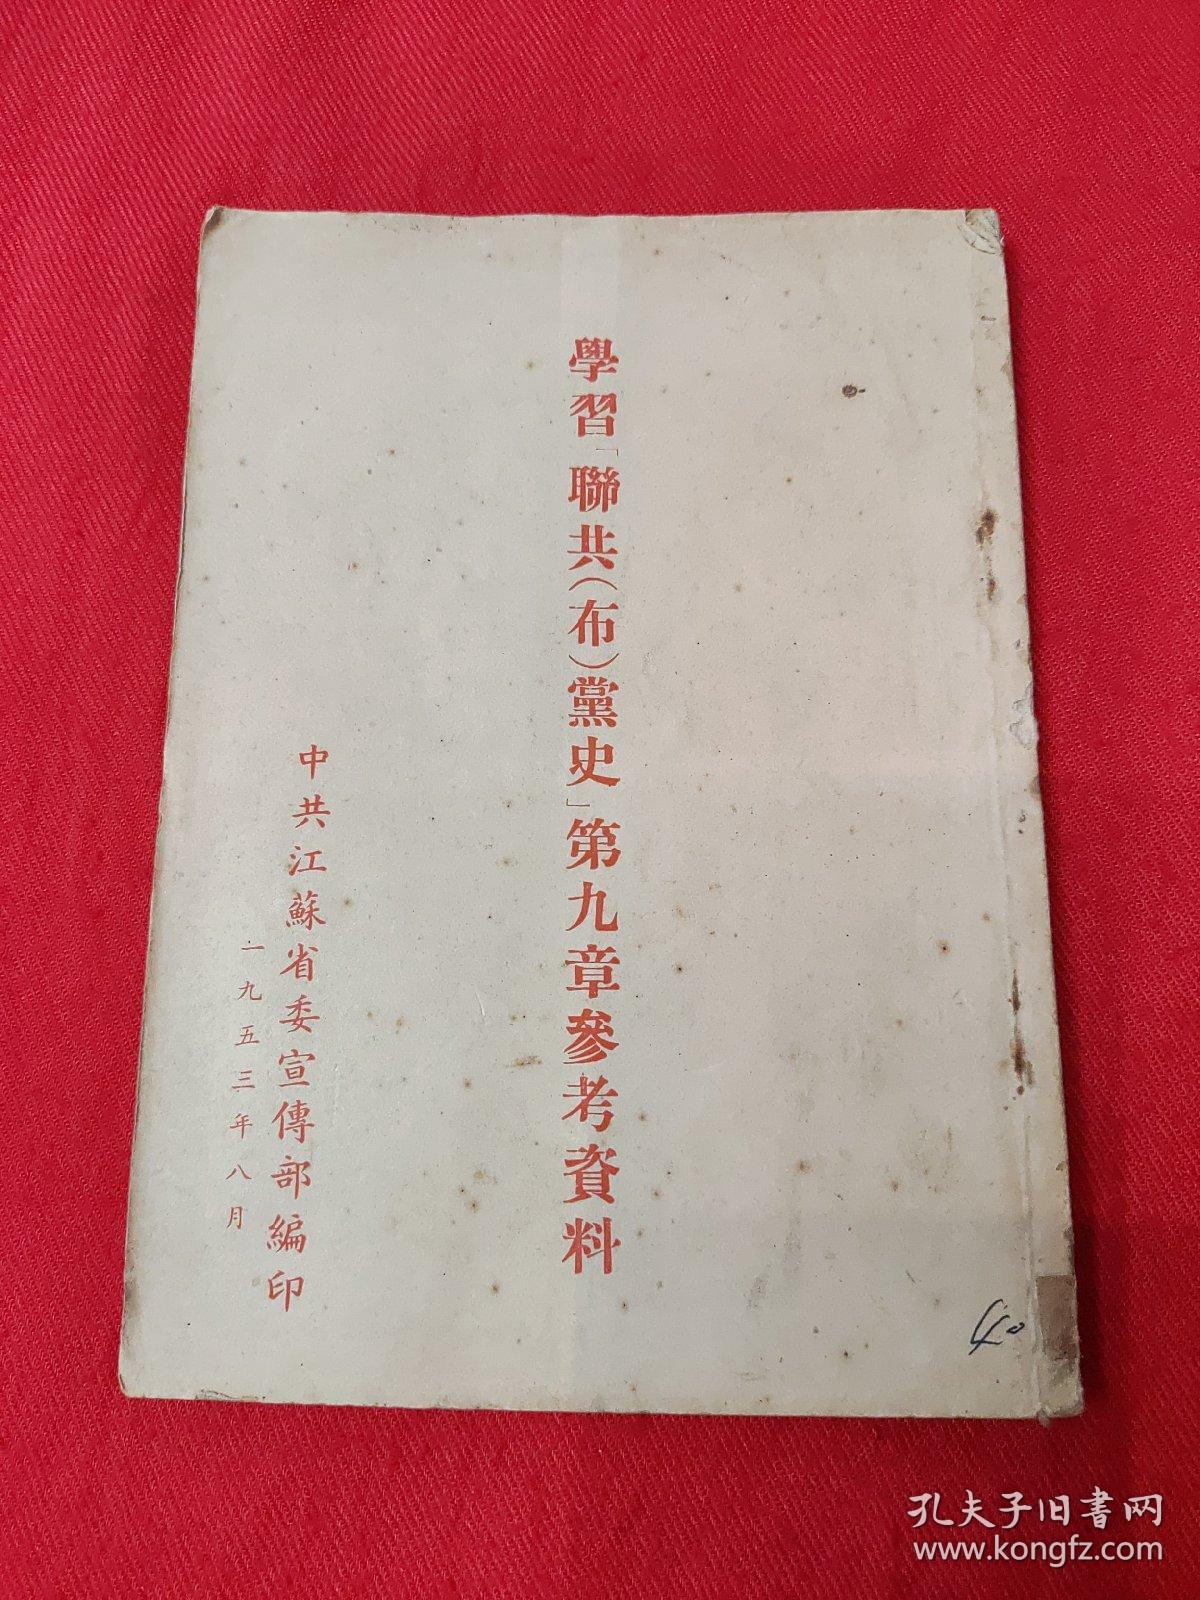 學習「聯共（布）黨史」第九章參考資料
中共江蘇省委宣傳部編印
一九五三年八月
40
孔夫子旧书网
www.kongfz.com